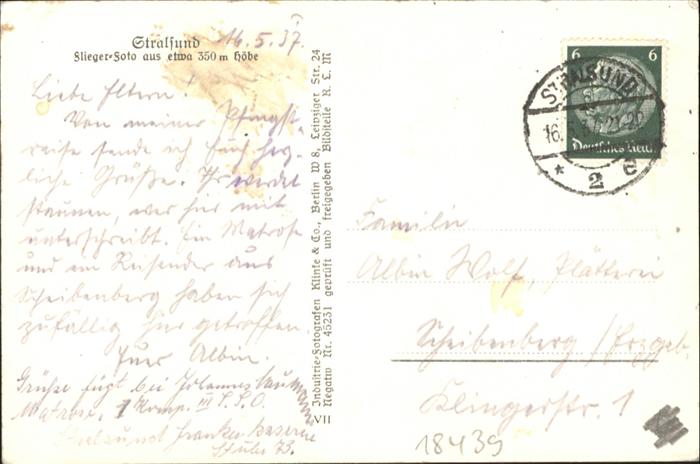 Stralsund 16.5.37.
Flieger-Foto aus etwa 350 m Höhe
Liebe Eltern!
Von meiner Pfingst-
reise sende ich Euch herz-
liche Grüße. Ihr werdet
staunen, wer hier mit
unterschreibt. Ein Matrose
und ein Reisender aus
Scheibenberg haben sich
zufällig hier getroffen.
Euer Albin.
Grüße fügt bei Johannes
Matrose, 1 Komp. III S.S.O.
Stralsund Franken Kaserne
Stube 73.
Industrie-Fotografen Klinke & Co., Berlin W 8, Leipziger Str. 24
Negativ Nr. 45231 geprüft und freigegeben Bildstelle R. L. M
VII
6 6
Deutsches Reich
STRALSUND
16.
* 2
Familie
Albin Wolf, Plätterei
Scheibenberg / Erzgeb
Klingerstr. 1
18439